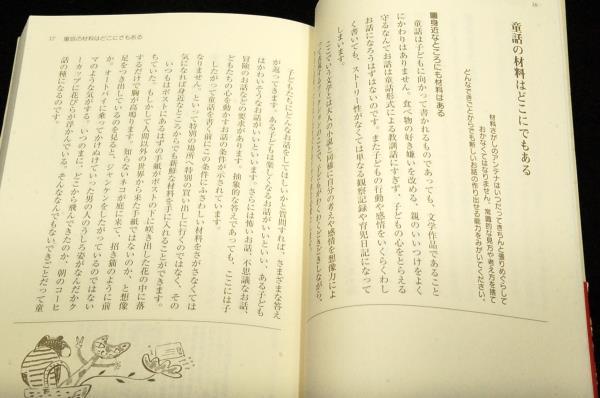 16
童話の材料はどこにでもある
材料さがしのアンテナはいつだってきちんと張りめぐらして
おかなくてはなりません。常識的な見方や考え方を捨て
どんなできごとからでも新しいお話の作り出せる能力をみがいてください。
身近なところにも材料はある
童話は子どもに向かって書かれるものであっても、文学作品であること
にかわりはありません。食べ物の好き嫌いを改める、親のいいつけをよく
守るなんてお話は童話形式による教訓話にすぎず、子どもの心をとらえる
お話になろうはずはないのです。また子どもの行動や感情をいくらくわし
く書いても、ストーリー性がなくては単なる観察記録や育児日記になって
しまいます。
17 童話の材料はどこにでもある
子どもたちにどんなお話をしてほしいかと質問すれば、さまざまな答え
が返ってきます。ある子どもは楽しくなるお話がいいといい、ある子ども
はかわいそうなお話がいいといいます。さらには怖いお話、不思議なお話、
冒険のお話などの要求があります。抽象的な答えであっても、ここには子
どもたちの心を動かすお話の条件が示されています。
したがって童話を書く前にこの条件にふさわしい材料をさがさなくては
なりません。といって特別の場所へ特別の買い出しに行くのではなく、その
気になれば身近なところからでも新鮮な材料を手に入れることができます。
いつもはポストにあるはずの手紙がポストの下に咲き出した花の中に落
ちていた。もしかして人間以外の世界から来た手紙ではないのか、と想像
するだけで胸が高鳴ります。知らないネコが庭に来て、招き猫のように前
足をつき出しているのを見ると、ジャンケンをしたがっているのではない
か。オートバイに乗ってかけぬけていった男の人のうしろ姿がなんだかク
マのような気がする。いつのまに、どこから飛んできたのか、朝のコーヒ
ーカップに花びらが浮かんでいる。そんななんでもないできごとだって童
話の種になるのです。